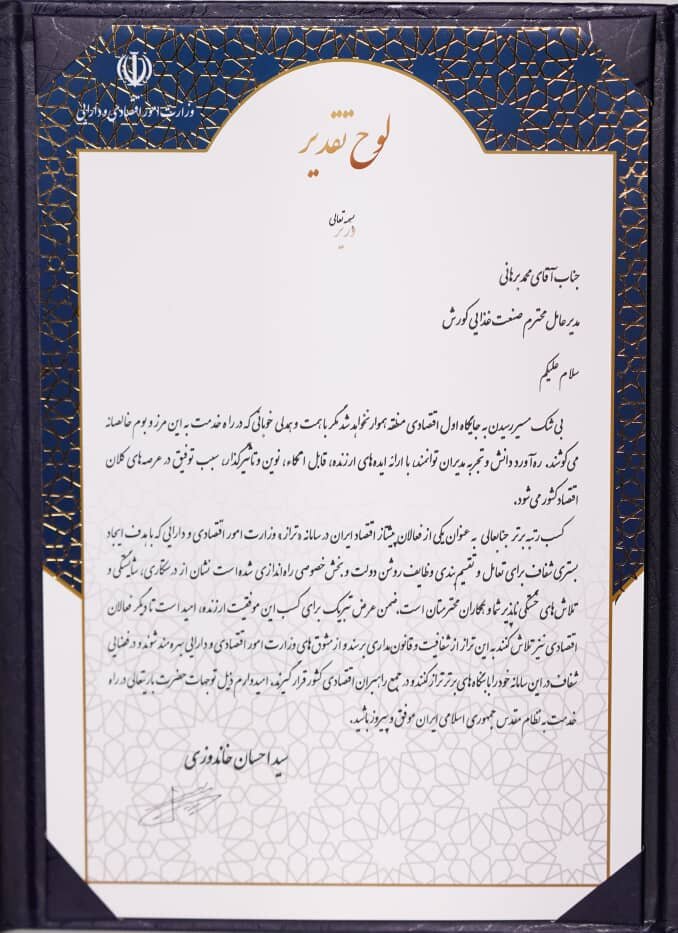 وزارت امور اقتصادی و دارایی
لوح تقدیر
بسمه تعالی
جناب آقای محمد برهانی
مدیرعامل محترم صنعت غذایی کورش
سلام علیکم
بی شک مسیر رسیدن به جایگاه اول اقتصادی منطقه هموار نخواهد شد مگر با همت و همدلی خوبانی که در راه خدمت به این مرز و بوم خالصانه
می کوشند. ره آورد دانش و تجربه مدیران توانمند، با ارائه ایده های ارزنده، قابل اتکاء، نوین و تأثیرگذار، سبب توفیق در عرصه های کلان
اقتصاد کشور می شود.
کسب رتبه برتر جنابعالی به عنوان یکی از فعالان پیشتاز اقتصاد ایران در سامانه «تراز» وزارت امور اقتصادی و دارایی که با هدف ایجاد
بستری شفاف برای تعامل و تقسیم بندی وظایف روشن دولت و بخش خصوصی راه اندازی شده است نشان از درستکاری، شایستگی و
تلاش های خستگی ناپذیر شما و همکاران محترمتان است، ضمن عرض تبریک برای کسب این موفقیت ارزنده، امید است تا دیگر فعالان
اقتصادی نیز تلاش کنند به این تراز از شفافیت و قانون مداری برسند و از مشوق های وزارت امور اقتصادی و دارایی بهره مند شوند و در فضایی
شفاف در این سامانه خود را با بنگاه های برتر تراز کنند و در جمع راهبران اقتصادی کشور قرار گیرند. امیدوارم ذیل توجهات حضرت باریتعالی در راه
خدمت به نظام مقدس جمهوری اسلامی ایران موفق و پیروز باشید.
سید احسان خاندوزی